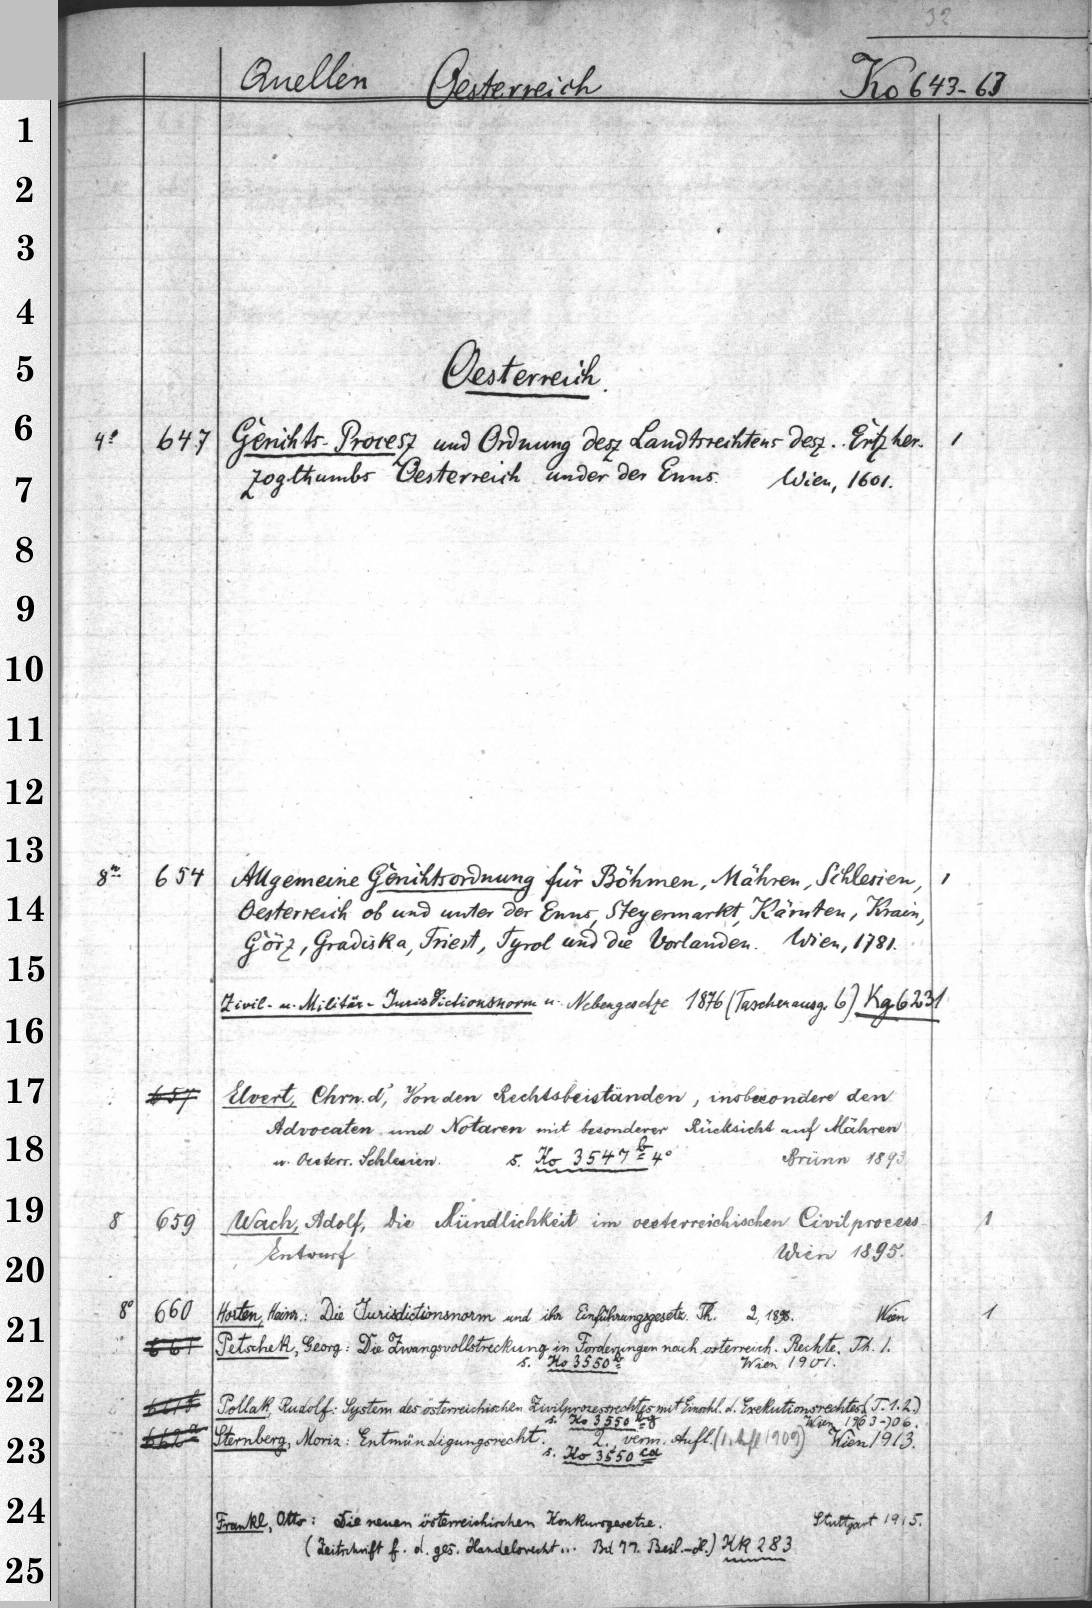 32
Quellen Oesterreich Ko 643-63
1
2
3
4
Oesterreich.
5
6 4° 647 Gerichts-Procesz und Ordnung desz Landtsrechtens desz.. Ertzher- 1
7 zogthumbs Oesterreich under der Enns. Wien, 1601.
8
9
10
11
12
13 8° 654 Allgemeine Gerichtsordnung für Böhmen, Mähren, Schlesien, 1
14 Oesterreich ob und unter der Enns, Steyermarkt, Kärnten, Krain,
Görz, Gradiska, Triest, Tyrol und die Vorlanden. Wien, 1781.
15
Zivil- u. Militär-Jurisdictionsnorm u. Nebengesetze 1876 (Taschenausg. 6) Kg 6231
16
17 657 Elvert, Chrn. d', Von den Rechtsbeiständen, insbesondere den
Advocaten und Notaren mit besonderer Rücksicht auf Mähren
18 u. Oesterr. Schlesien. s. Ko 3547 b 4° Brünn 1893
19 8 659 Wach, Adolf, Die Mündlichkeit im oesterreichischen Civilprocess- 1
20 Entwurf Wien 1895.
8° 660 Horten, Heinr.: Die Jurisdictionsnorm und ihr Einführungsgesetz. Th. 2, 1898. Wien 1
21 661 Petschek, Georg: Die Zwangsvollstreckung in Forderungen nach österreich. Rechte. Th. 1.
s. Ko 3550 Wien 1901.
22 Pollak, Rudolf: System des österreichischen Zivilprozessrechtes mit Einschl. d. Exekutionsrechtes. (T. 1.2.)
s. Ko 3550 Wien 1903-706.
23 662a Sternberg, Moriz: Entmündigungsrecht. 2., verm. Aufl. (1. Aufl 1909) Wien 1913.
s. Ko 3550 cd
24 Frankl, Otto: Die neuen österreichischen Konkursgesetze. Stuttgart 1915.
(Zeitschrift f. d. ges. Handelsrecht... Bd 77. Beil.-H.) KK 283
25